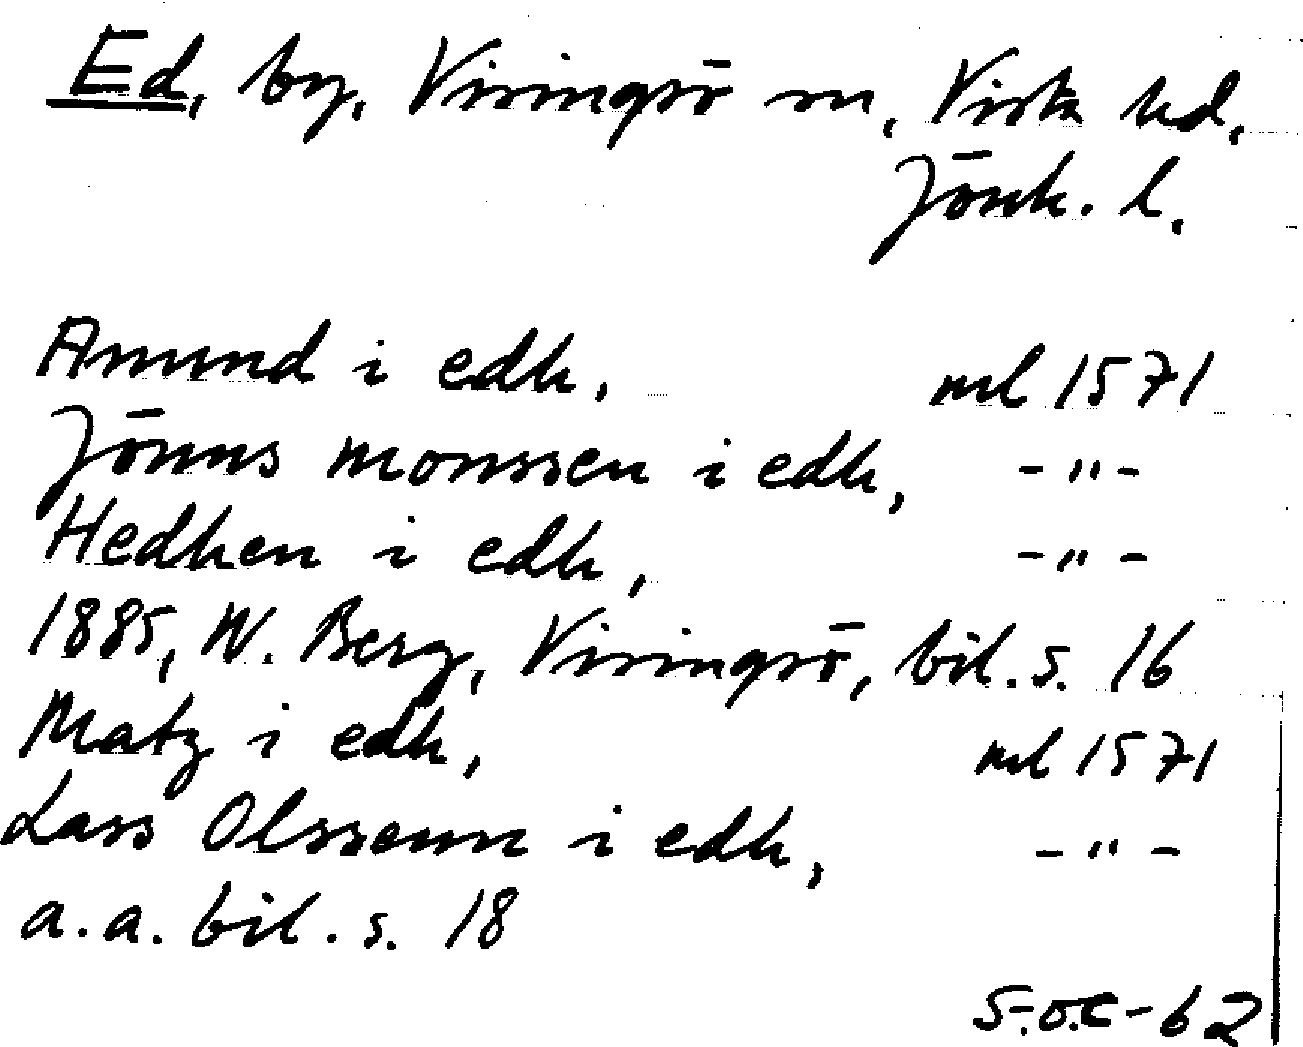 Ed, by, Visingsö sn, Vista hd,
Jönk. l.
Amund i edh, ml 1571
Jönns monssen i edh, -"-
Hedhen i edh, -"-
1885, W. Berg, Visingsö, bil. s. 16
Matz i edh, ml 1571
Lass Olssenn i edh, -"-
a.a. bil. s. 18
S.O.C-62